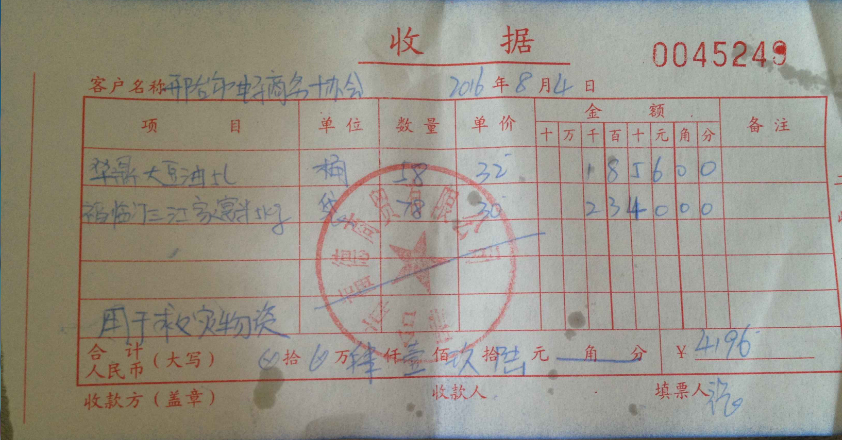 收 据
0045249
客户名称 邢台市电子商务协会 2016 年 8 月 4 日
项 目 单 位 数 量 单 价 金 额 备 注
十 万 千 百 十 元 角 分
大豆油5L 桶 58 32 1 8 5 6 0 0
福临门三江 5kg 袋 78 30 2 3 4 0 0 0
用于救灾物资
合 计
人民币 (大写) 0 拾 0 万 肆 仟 壹 佰 玖 拾 陆 元 角 分 ¥ 4196
收款方 (盖章) 收款人 填票人